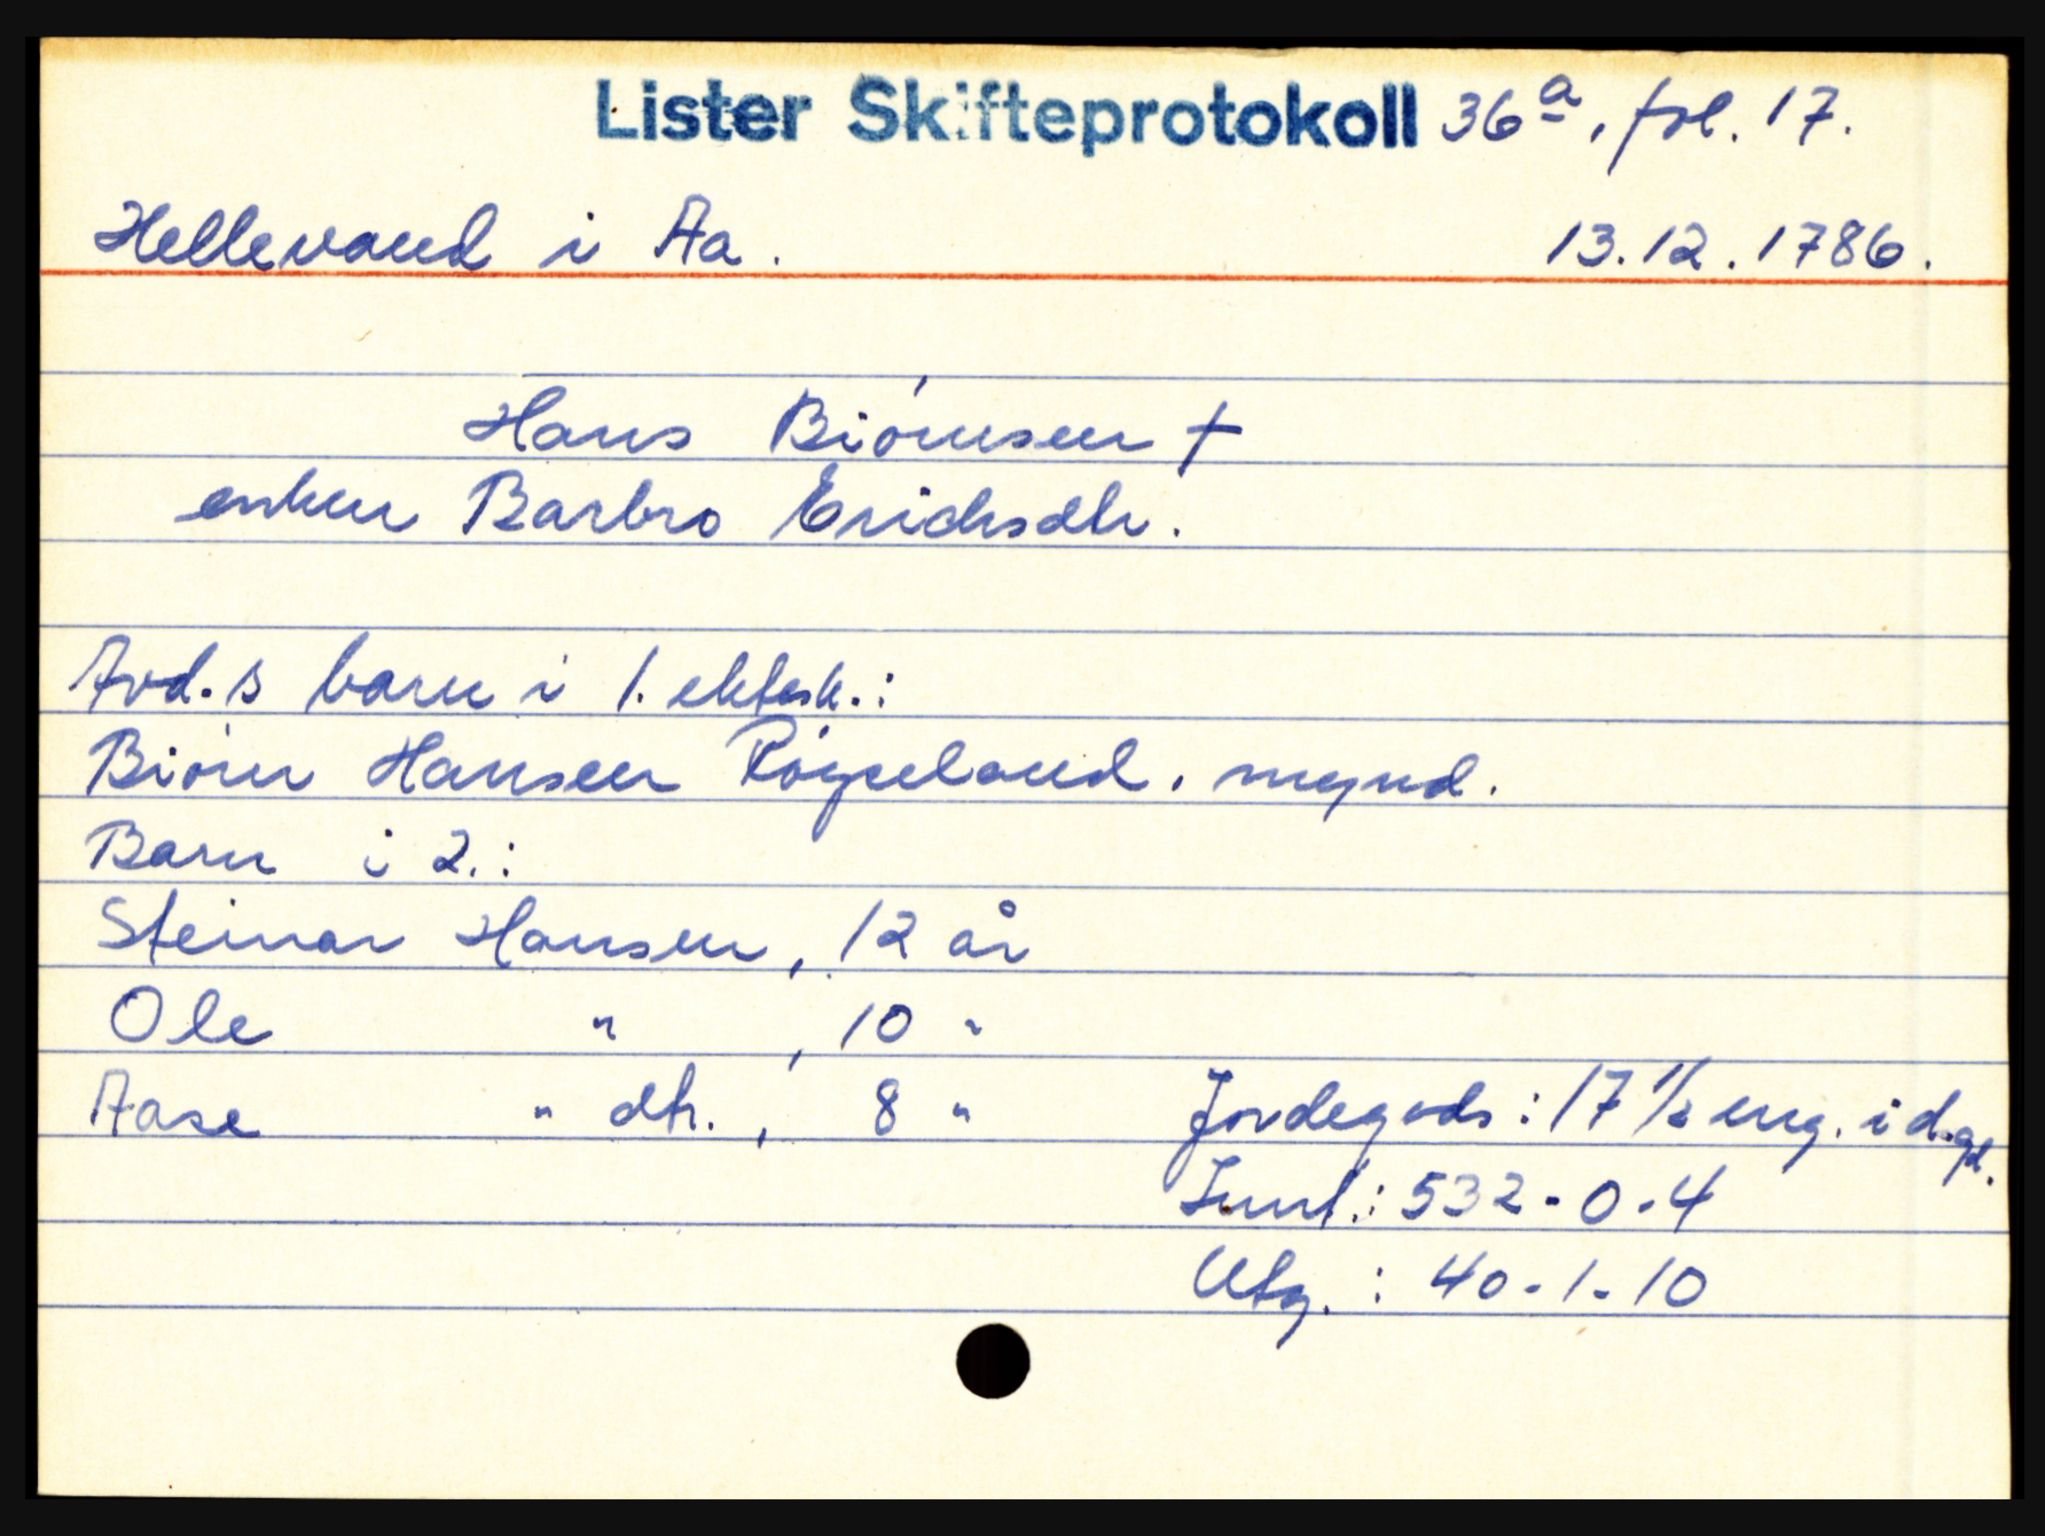 Lister Skifteprotokoll 36a, fol. 17.
Hellevand i Aa. 13.12.1786.
Hans Biórnsen †
enken Barbro Erichsdtr.
Avd.s barn i 1. ektesk.:
Biórn Hansen Róyseland, mynd.
Barn i 2.:
Steinar Hansen, 12 år
Ole " , 10 "
Aase " dtr., 8 "
Jordegods: 17 1/2 eng. i d. gd.
Innt.: 532-0-4
Utg.: 40-1-10